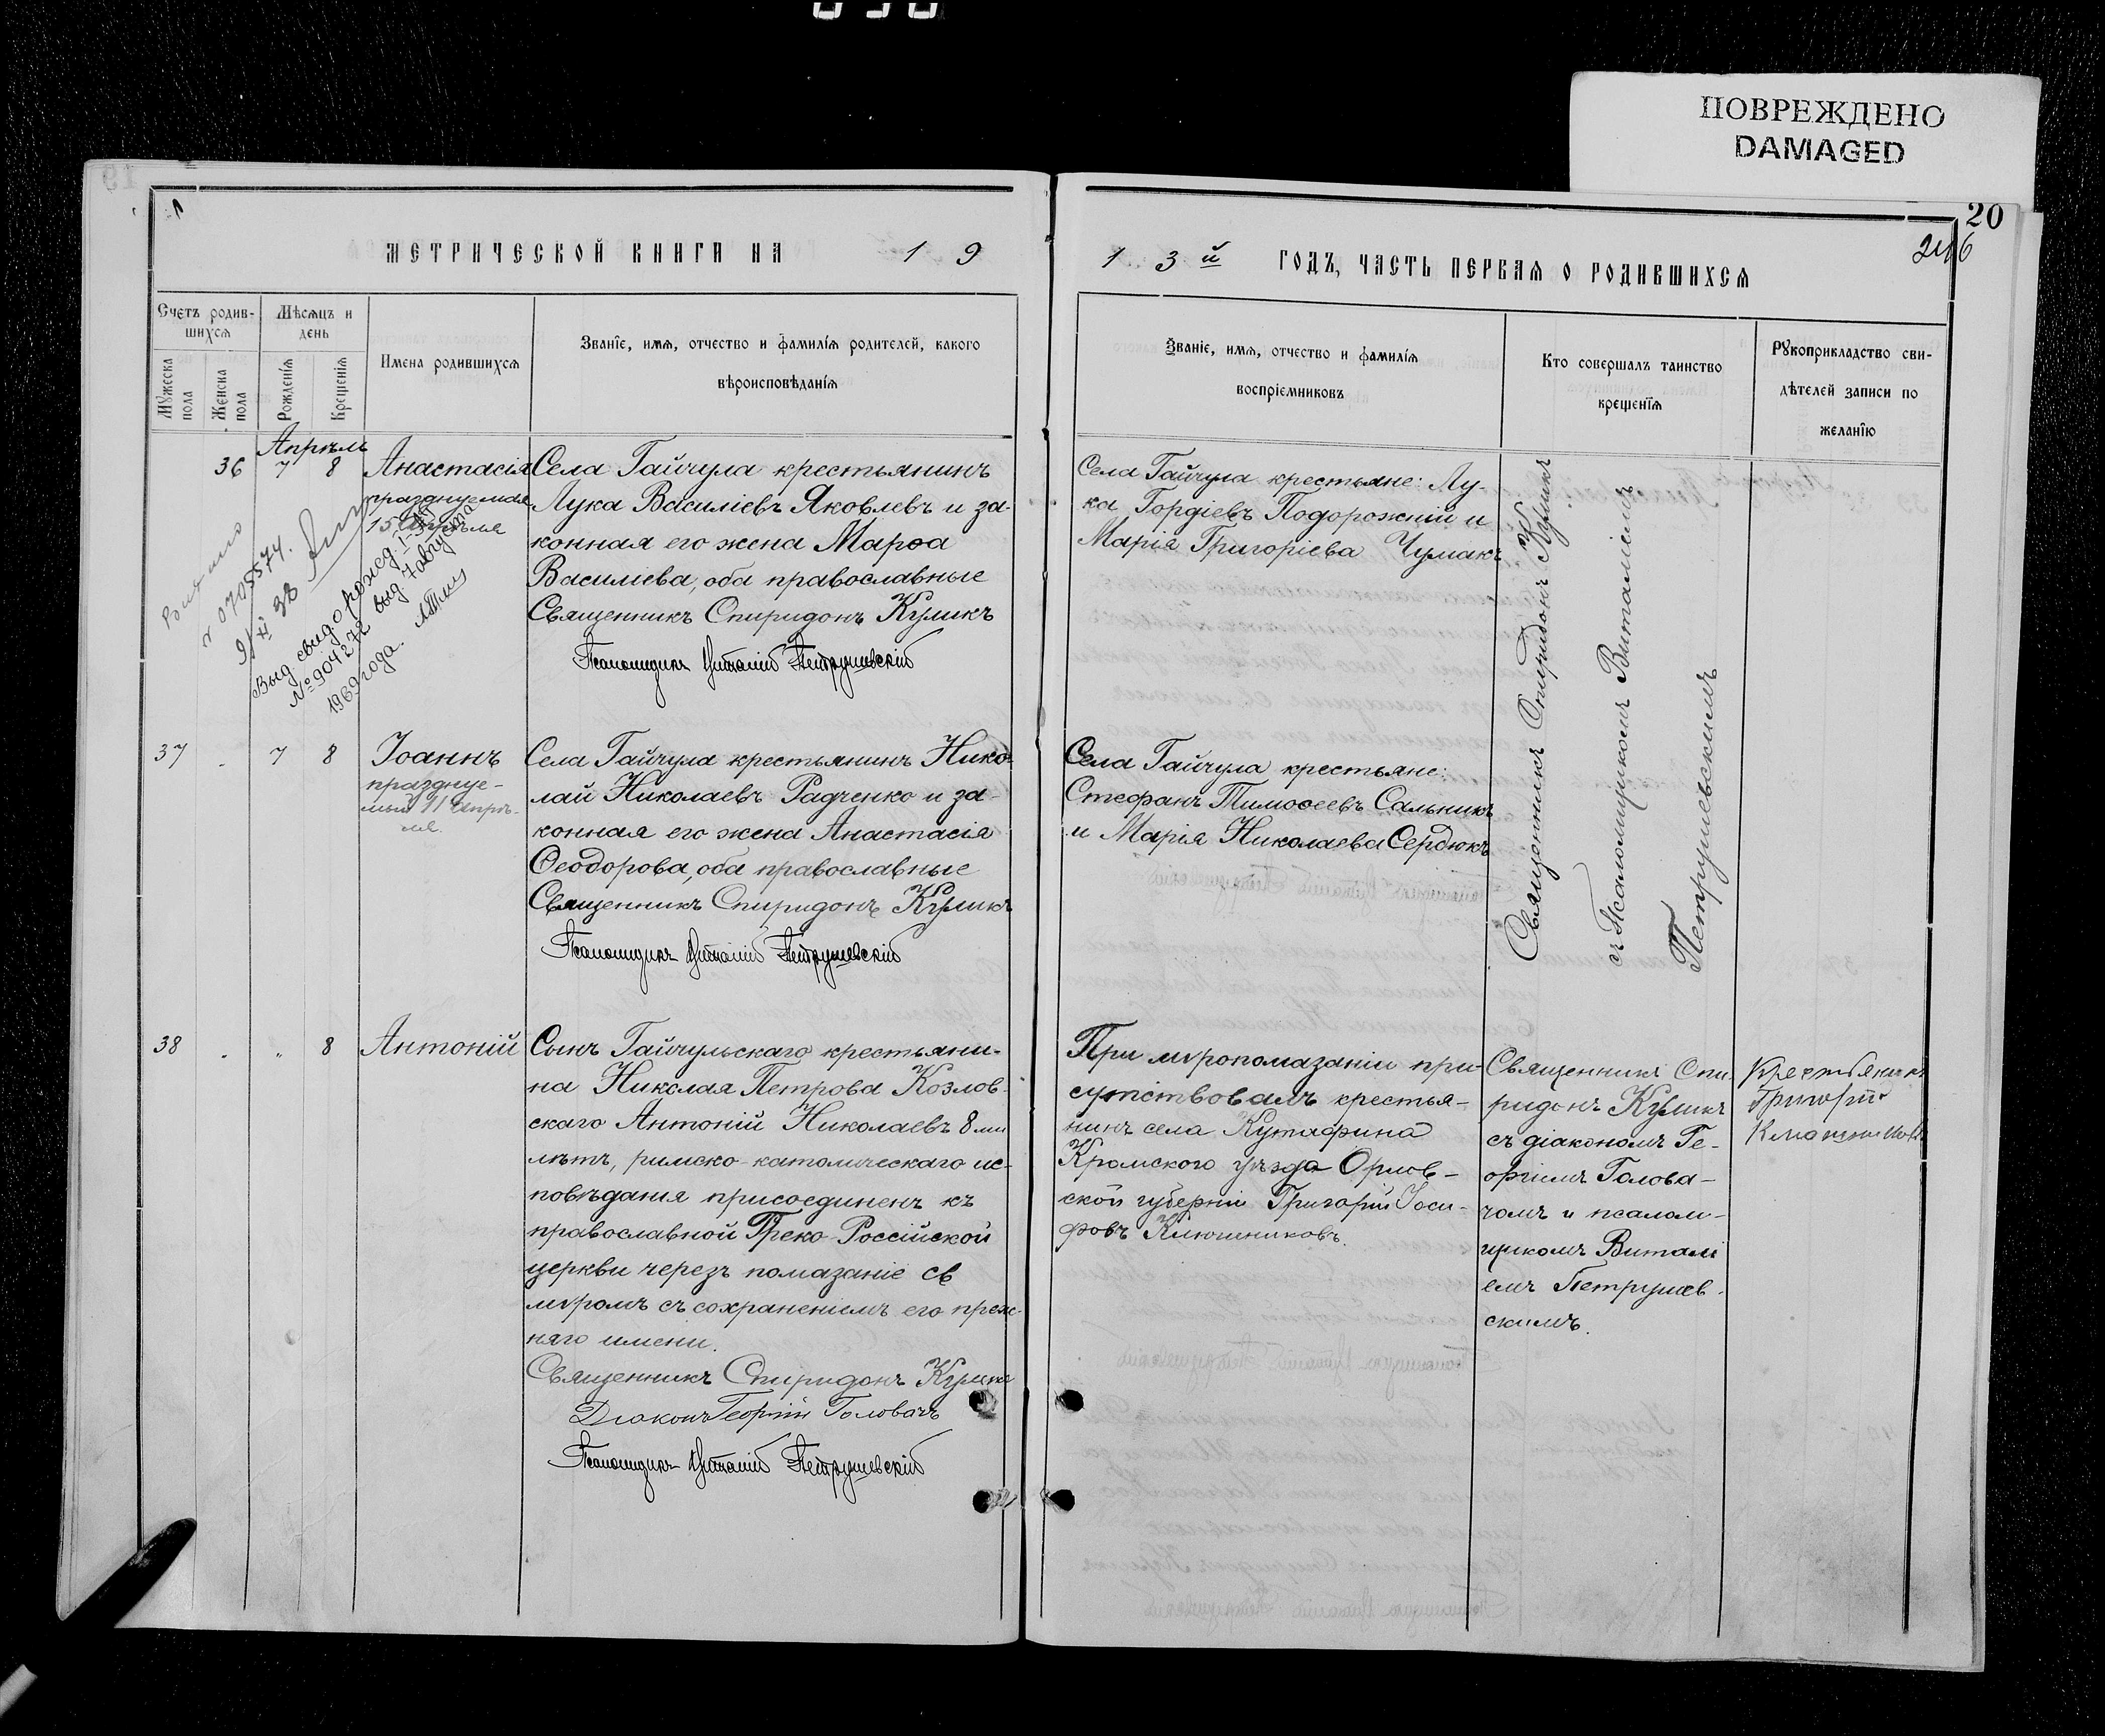 ПОВРЕЖДЕНО
DAMAGED
20
246
МЕТРИЧЕСКОЙ КНИГИ НА 19
13й ГОДЪ, ЧАСТЬ ПЕРВАЯ О РОДИВШИХСЯ
Счетъ родив-
шихся
Мужеска пола
Женска пола
Мѣсяцъ и
день
Рожденія
Крещенія
Имена родившихся
Званіе, имя, отчество и фамилія родителей, какого
вѣроисповѣданія
Званіе, имя, отчество и фамилія
воспріємниковъ
Кто совершалъ таинство
крещенїя
Рукоприкладство сви-
дѣтелей записи по
желанїю
Апрѣль
36 7 8
Анастасія
празднуемая
15 Апрѣля
0705574.
9/XI 38
Выд. свид. о рожд. I-
№904272 выд 7 августа
1969 года.
Села Гайчула крестьянинъ
Лука Василіевъ Яковлевъ и за-
конная его жена Марѳа
Василіева, оба православные
Священникъ Спиридонъ Куликъ
Псаломщикъ Виталій Петрушевскій
Села Гайчула крестьяне: Лу-
ка Гордіевъ Подорожній и
Марія Григоріева Чумакъ
Священникъ Спиридонъ Куликъ
съ Псаломщикомъ Виталіемъ
Петрушевскимъ
37 7 8
Іоаннъ
празднуе-
мый 11 Апрѣ-
ля.
Села Гайчула крестьянинъ Нико-
лай Николаевъ Радченко и за-
конная его жена Анастасія
Ѳеодорова, оба православные
Священникъ Спиридонъ Куликъ
Псаломщикъ Виталій Петрушевскій
Села Гайчула крестьяне:
Стефанъ Тимоѳеевъ Сальникъ
и Марія Николаева Сердюкъ
38 „ 8
Антоній
Сынъ Гайчульскаго крестьяни-
на Николая Петрова Козлов-
скаго Антоній Николаевъ 8 ми
лѣтъ, римско-католическаго ис-
повѣдания присоединенъ къ
православной Греко-Россійской
церкви черезъ помазаніе св
мѵромъ съ сохраненіемъ его преж-
няго имени.
Священникъ Спиридонъ Куликъ
Діаконъ Георгій Головачъ
Псаломщикъ Виталій Петрушевскій
При мѵропомазаніи при-
сутствовалъ крестья-
нинъ села Кутафина
Кромского уѣзда Орлов-
ской губерніи Григорій Іоси-
фовъ Клюшниковъ.
Священникъ Спи-
ридонъ Куликъ
съ діакономъ Ге-
оргіемъ Голова-
чомъ и псалом-
щикомъ Виталі
емъ Петрушев-
скимъ.
Крестьянинъ
Григорій